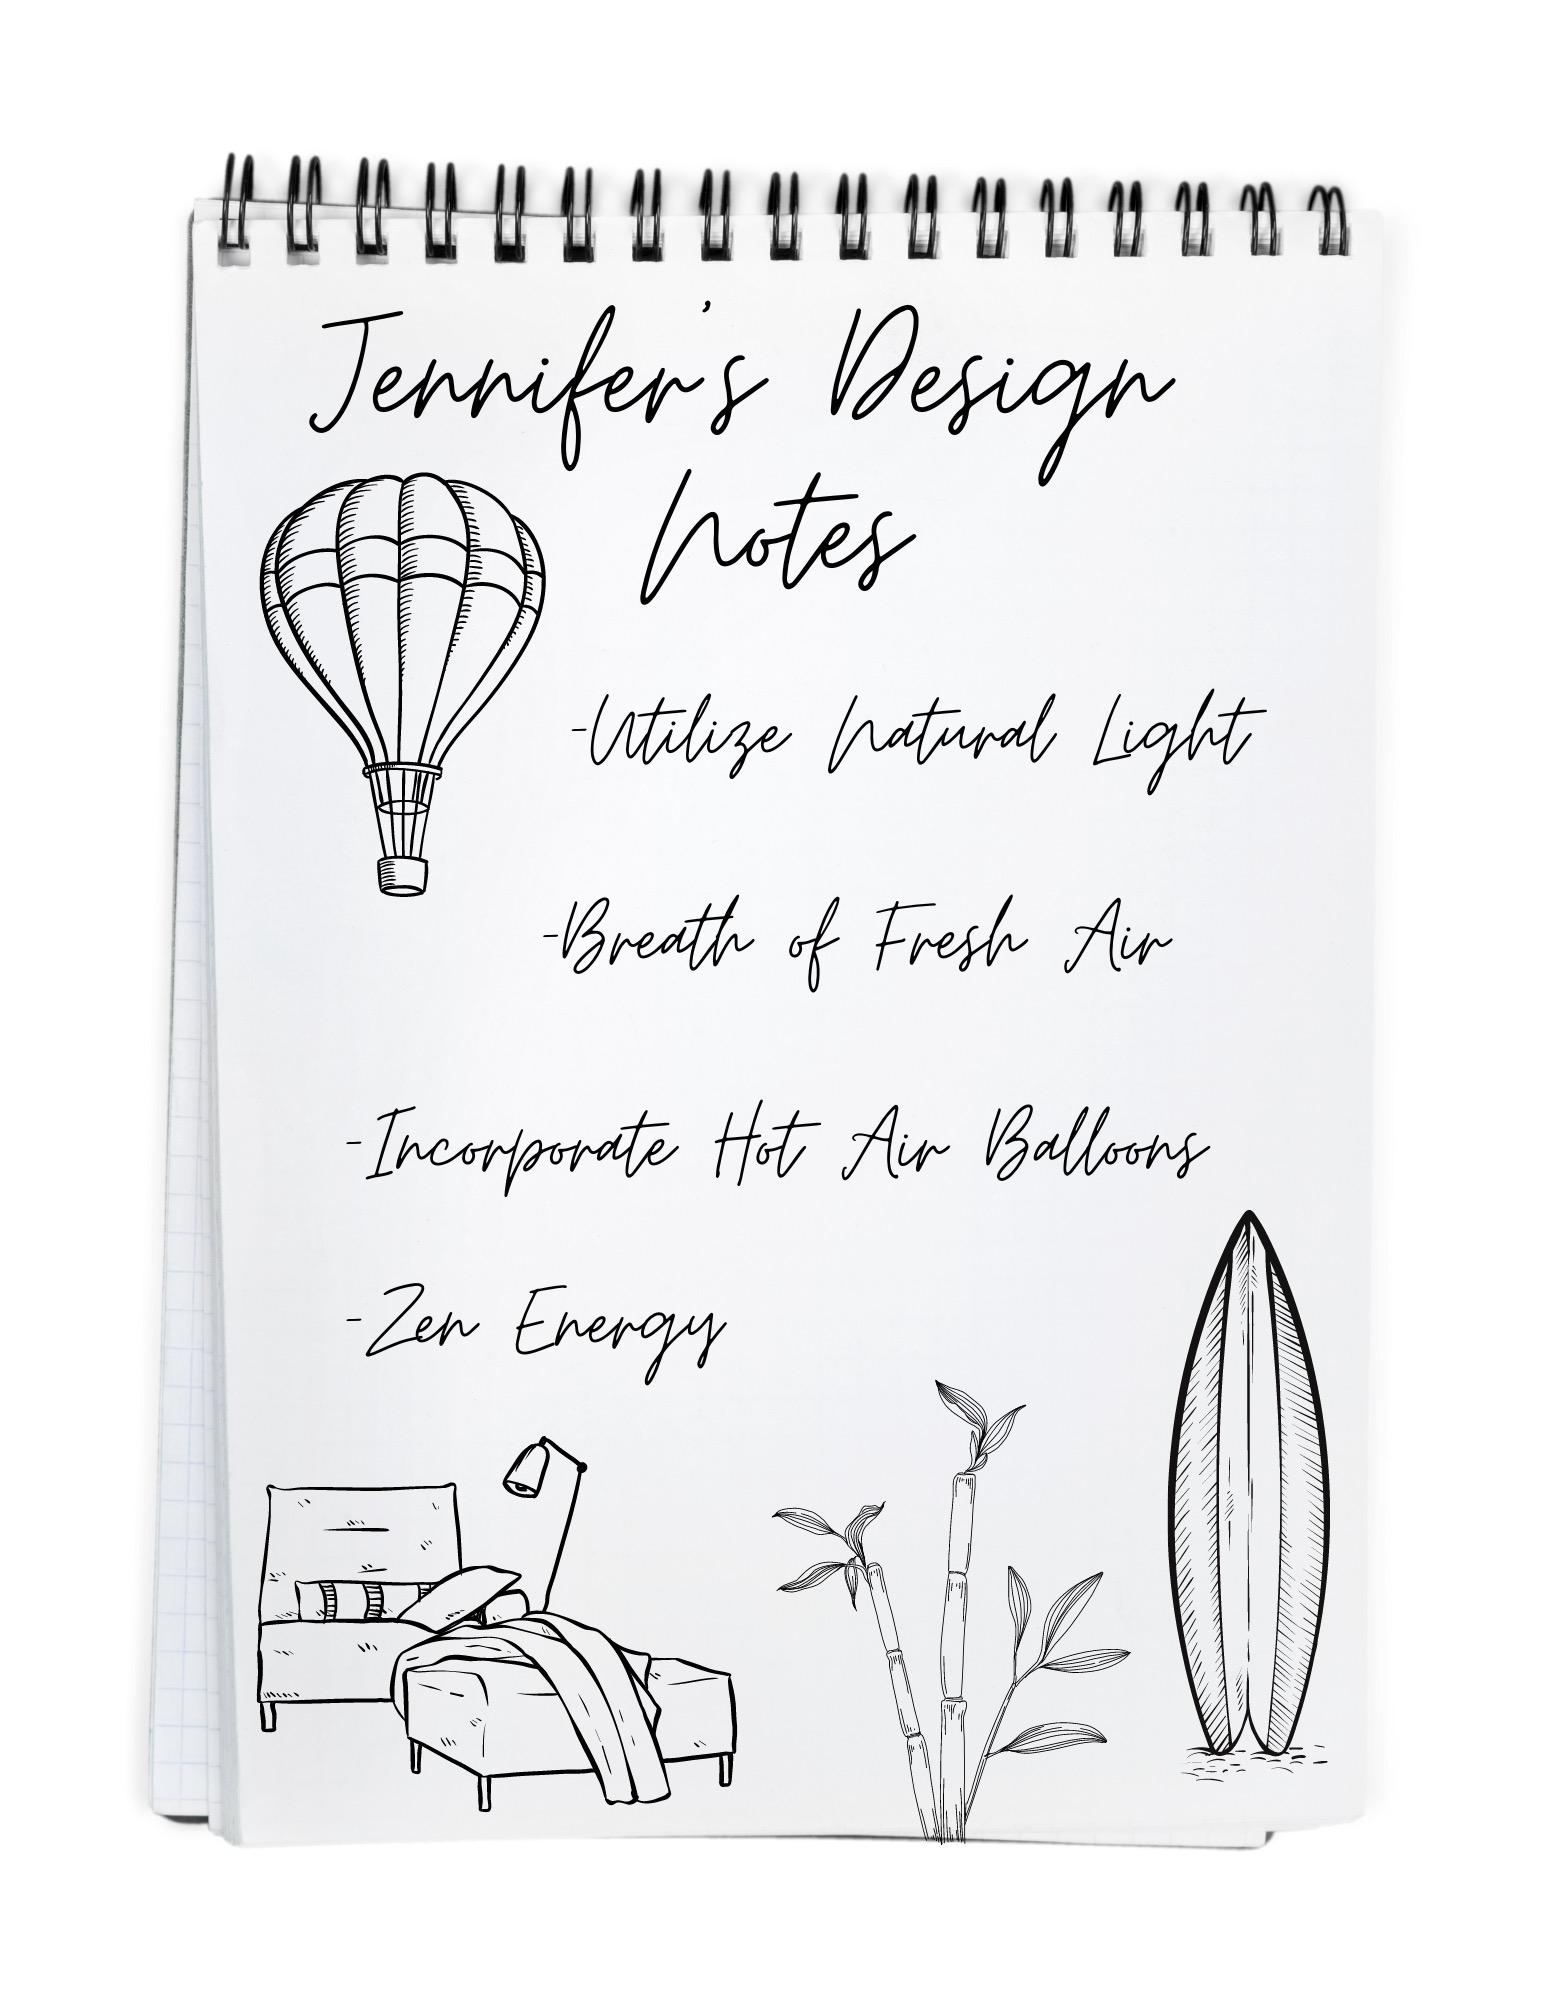 Jennifer's Design
Notes
-Utilize Natural Light
-Breath of Fresh Air
-Incorporate Hot Air Balloons
-Zen Energy